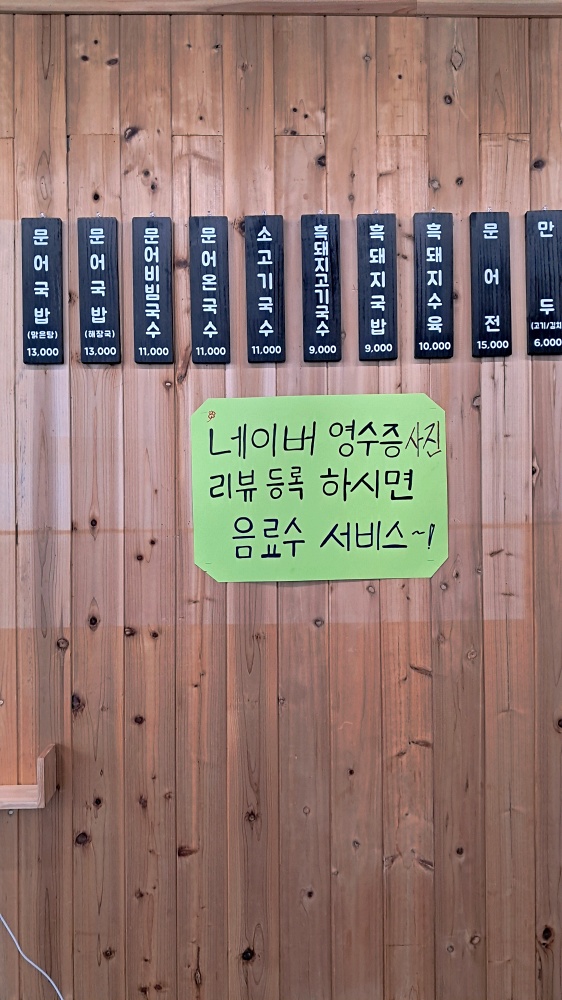 문어국밥
(맑은탕)
13,000
문어국밥
(해장국)
13,000
문어비빔국수
11,000
문어온국수
11,000
소고기국수
11,000
흑돼지고기국수
9,000
흑돼지국밥
9,000
흑돼지수육
10,000
문어전
15,000
만두
(고기/김치
6,000
네이버 영수증사진
리뷰 등록 하시면
음료수 서비스~!